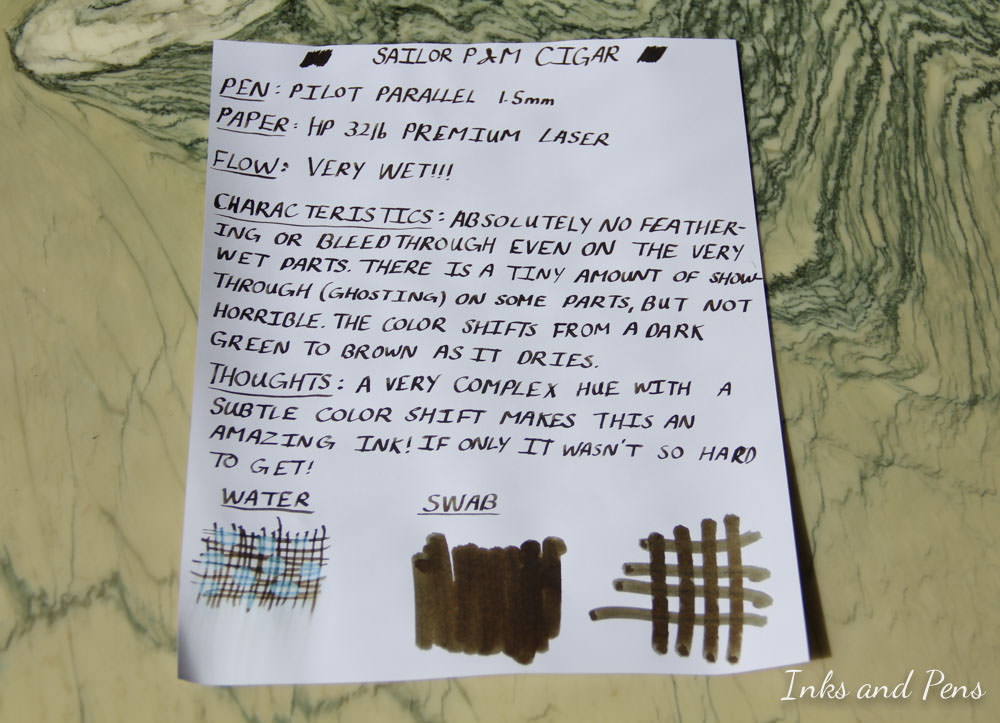 SAILOR P&M CIGAR
PEN: PILOT PARALLEL 1.5mm
PAPER: HP 32lb PREMIUM LASER
FLOW: VERY WET!!!
CHARACTERISTICS: ABSOLUTELY NO FEATHER-
ING OR BLEEDTHROUGH EVEN ON THE VERY
WET PARTS. THERE IS A TINY AMOUNT OF SHOW
THROUGH (GHOSTING) ON SOME PARTS, BUT NOT
HORRIBLE. THE COLOR SHIFTS FROM A DARK
GREEN TO BROWN AS IT DRIES.
THOUGHTS: A VERY COMPLEX HUE WITH A
SUBTLE COLOR SHIFT MAKES THIS AN
AMAZING INK! IF ONLY IT WASN'T SO HARD
TO GET!
WATER SWAB
Inks and Pens